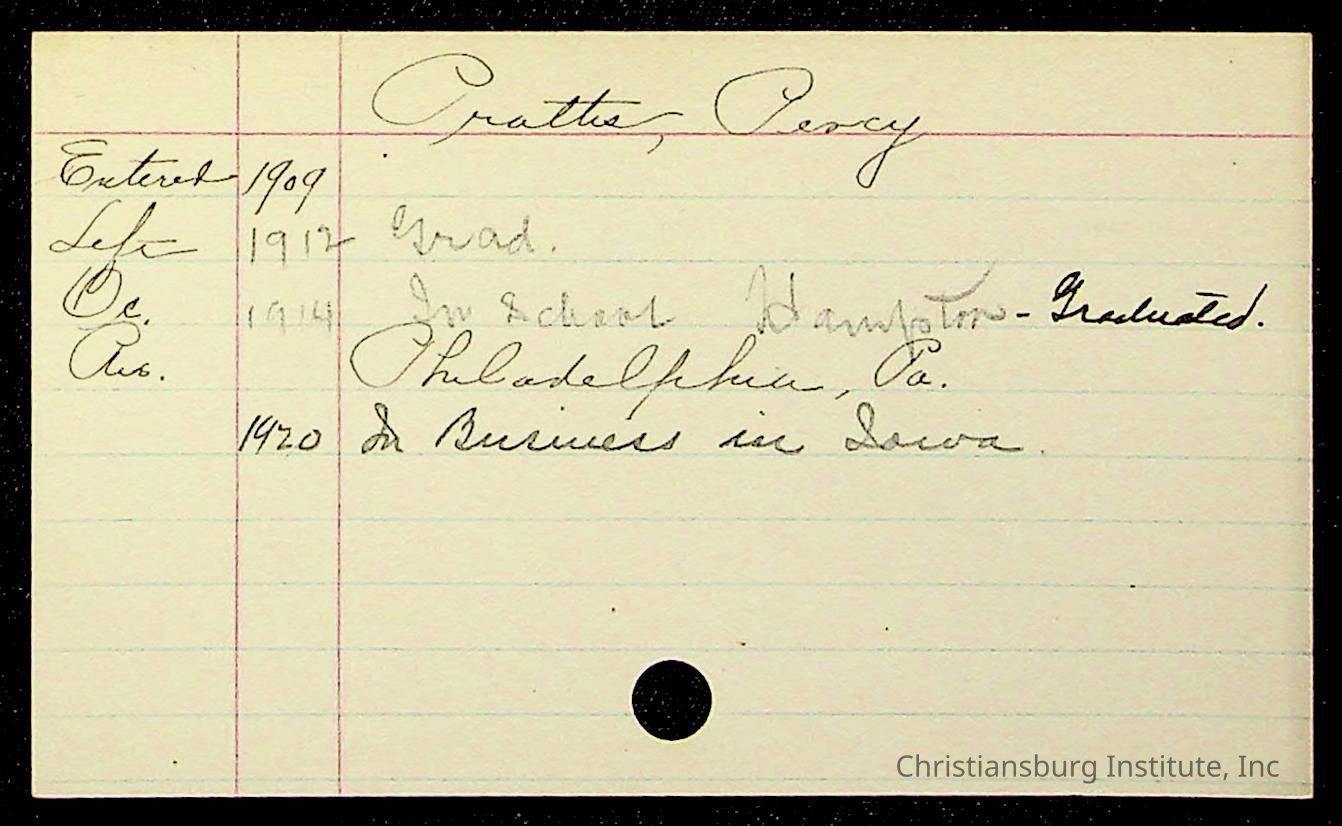 Prattis, Percy
Entered 1909
Left 1912 Grad.
Oc. 1914 In School Hampton - Graduated.
Res. Philadelphia, Pa.
1920 In Business in Iowa.
Christiansburg Institute, Inc